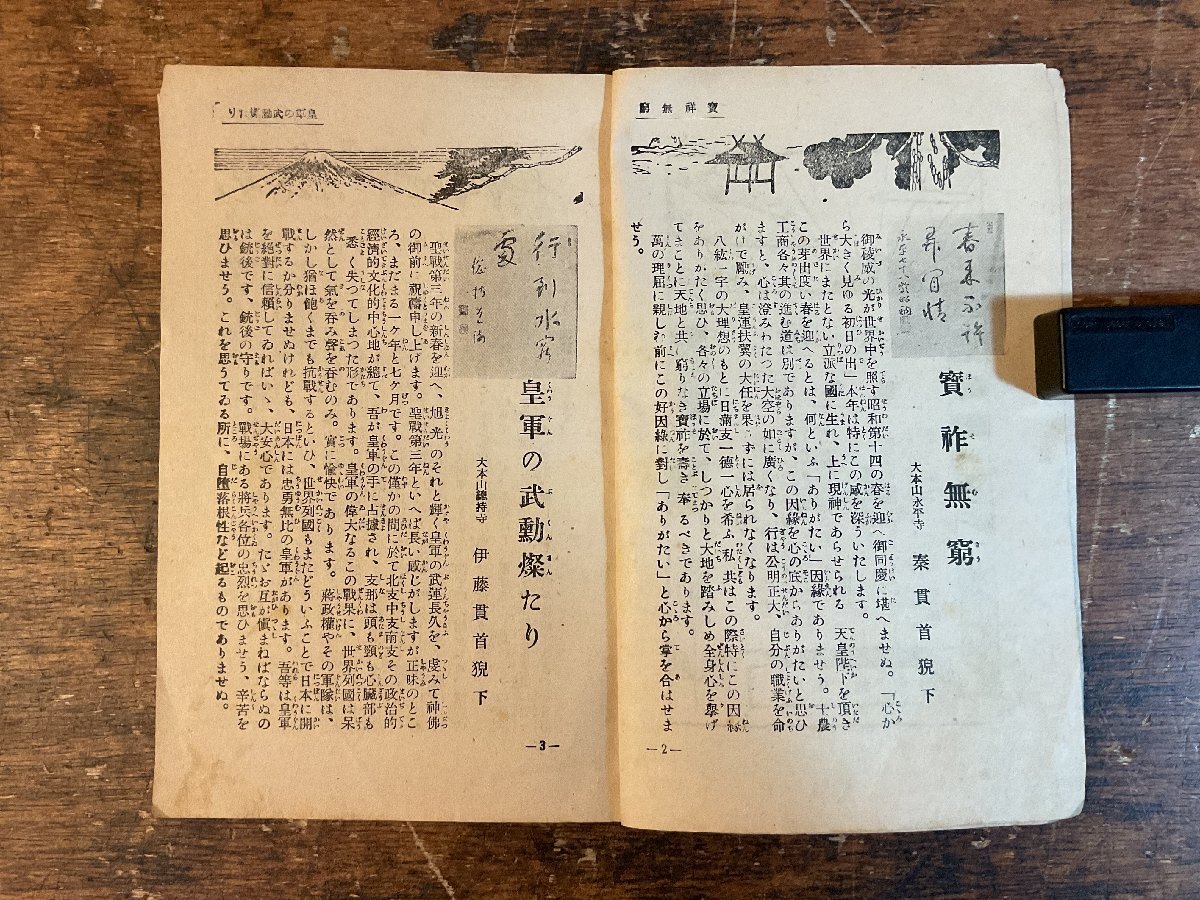 寶祚無窮
寶祚無窮
大本山永平寺 秦貫首猊下
御稜威の光が世界中を照す昭和第十四の春を迎へ御同慶に堪へませぬ。「心か
ら大きく見ゆる初日の出」本年は特にこの感を深ういたします。
世界にまたとない立派な國に生れ、上に現神であらせられる 天皇陛下を頂き
この芽出度い春を迎へるとは、何といふ「ありがたい」因縁でありませう。士農
工商各々其の進む道は別でありますが、この因縁を心の底からありがたいと思ひ
ますと、心は澄みわたつた大空の如に廣くなり、行は公明正大、自分の職業を命
がけで勵み、皇運扶翼の大任を果さずには居られなくなります。
八紘一宇の大理想のもとに日滿支一德一心を希ふ私共はこの際特にこの因縁
をありがたく思ひ、各々の立場に於て、しつかりと大地を踏みしめ全身心を擧げ
てまことに天地と共に窮りなき寶祚を壽き奉るべきであります。
萬の理屈に親しむ前にこの好因縁に對し「ありがたい」と心から掌を合はせま
せう。
—2—
皇軍の武勳燦たり
行到水窮
處
皇軍の武勳燦たり
大本山總持寺 伊藤貫首猊下
聖戰第三年の新春を迎へ、旭光のそれと輝く皇軍の武運長久を、虔みて神佛
の御前に祝禱申し上げます。聖戰第三年といへば長い感じがしますが正味のとこ
ろ、まだまる一ケ年と七ケ月です。この僅かの間に於て北支中支南支その政治的
經濟的文化的中心地が總て、吾が皇軍の手に占據され、支那は頭も頸も心臟部も
悉く失つてしまつた形であります。皇軍の偉大なるこの戰果に、世界列國は呆
然として氣を呑み聲を呑むのみ。實に愉快であります。蔣政權やその軍隊は、
しかし猶ほ飽くまでも抗戰するといひ、世界列國もまたどういふことで日本に開
戰するか分りませぬけれども、日本には忠勇無比の皇軍があります。吾等は皇軍
を絕對に信賴してゐればいゝ、大安心であります。たゞお互が愼まねばならぬの
は銃後です、銃後の守りです。戰場にある將兵各位の忠烈を思ひませう、辛苦を
思ひませう。これを思うてゐる所に、自墮落根性など起るものでありませぬ。
—3—